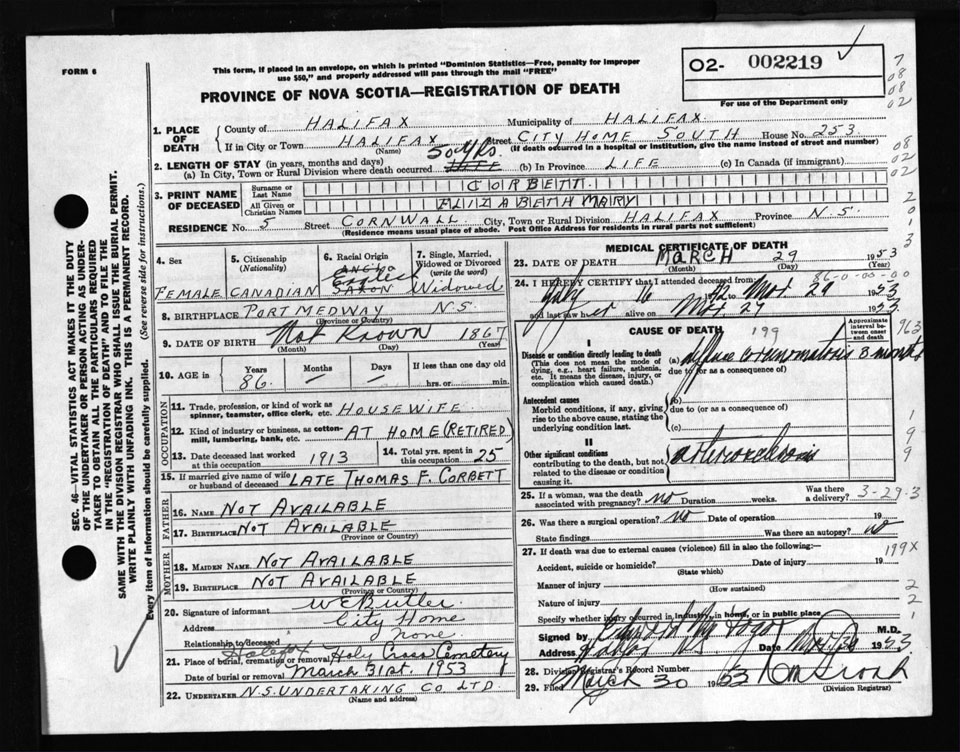 FORM 6
This form, if placed in an envelope, on which is printed "Dominion Statistics—Free, penalty for improper
use $50," and properly addressed will pass through the mail "FREE"
O2- 002219
PROVINCE OF NOVA SCOTIA—REGISTRATION OF DEATH
For use of the Department only
1. PLACE OF DEATH
County of HALIFAX Municipality of HALIFAX
If in City or Town HALIFAX (Name) Street CITY HOME SOUTH House No. 253
(If death occurred in a hospital or institution, give the name instead of street and number)
2. LENGTH OF STAY (in years, months and days)
(a) In City, Town or Rural Division where death occurred 50 yrs. (b) In Province LIFE (c) In Canada (if immigrant)
3. PRINT NAME OF DECEASED
Surname or Last Name CORBETT
All Given or Christian Names ELIZABETH MARY
RESIDENCE No. 5 Street CORNWALL City, Town or Rural Division HALIFAX Province N.S.
(Residence means usual place of abode. Post Office Address for residents in rural parts not sufficient)
4. Sex
FEMALE
5. Citizenship (Nationality)
CANADIAN
6. Racial Origin
SAXON
7. Single, Married, Widowed or Divorced (write the word)
Widowed
8. BIRTHPLACE PORT MEDWAY N.S.
(Province or Country)
9. DATE OF BIRTH Not Known 1867
(Month) (Day) (Year)
10. AGE in Years Months Days If less than one day old
86 hrs. or min.
OCCUPATION
11. Trade, profession, or kind of work as spinner, teamster, office clerk, etc. HOUSEWIFE
12. Kind of industry or business, as cotton-mill, lumbering, bank, etc. AT HOME (RETIRED)
13. Date deceased last worked at this occupation 1913
14. Total yrs. spent in this occupation 25
15. If married give name of wife or husband of deceased LATE THOMAS F. CORBETT
FATHER
16. NAME NOT AVAILABLE
17. BIRTHPLACE NOT AVAILABLE
(Province or Country)
MOTHER
18. MAIDEN NAME NOT AVAILABLE
19. BIRTHPLACE NOT AVAILABLE
(Province or Country)
20. Signature of informant W C Butler
Address City Home
Relationship to deceased none
21. Place of burial, cremation or removal Halifax Holy Cross Cemetery
Date of burial or removal March 31st. 1953
22. UNDERTAKER N.S. UNDERTAKING CO LTD.
(Name and address)
MEDICAL CERTIFICATE OF DEATH
23. DATE OF DEATH MARCH 29 1953
(Month) (Day) (Year)
86-0-00-00
24. I HEREBY CERTIFY that I attended deceased from
July 16 to Mar 29 1953
and last saw her alive on Mar 27 1953.
CAUSE OF DEATH 199
Approximate interval between onset and death
I
Disease or condition directly leading to death
(This does not mean the mode of dying, e.g., heart failure, asthenia, etc. It means the disease, injury, or complication which caused death.)
(a) diffuse carcinomatosis 3 months
due to (or as a consequence of)
Antecedent causes
Morbid conditions, if any, giving rise to the above cause, stating the underlying condition last.
(b)
due to (or as a consequence of)
(c)
II
Other significant conditions
contributing to the death, but not related to the disease or condition causing it.
arteriosclerosis
25. If a woman, was the death associated with pregnancy? no Duration weeks. Was there a delivery? 3-29-3
26. Was there a surgical operation? no Date of operation 19
State findings Was there an autopsy? no
27. If death was due to external causes (violence) fill in also the following:—
Accident, suicide or homicide? Date of injury 19
(State which)
199X
Manner of injury
(How sustained)
Nature of injury
Specify whether injury occurred in industry, in home, or in public place
Signed by M.D.
Address Halifax NS Date 1953
28. Division Registrar's Record Number
29. Filed March 30 1953
(Division Registrar)
SEC. 46—VITAL STATISTICS ACT MAKES IT THE DUTY
OF THE UNDERTAKER OR PERSON ACTING AS UNDER-
TAKER TO OBTAIN ALL THE PARTICULARS REQUIRED
IN THE "REGISTRATION OF DEATH" AND TO FILE THE
SAME WITH THE DIVISION REGISTRAR WHO SHALL ISSUE THE BURIAL PERMIT.
WRITE PLAINLY WITH UNFADING INK. THIS IS A PERMANENT RECORD.
Every item of information should be carefully supplied. (See reverse side for instructions.)
7
08
08
02
08
02
2
0
1
3
763
1
9
9
2
2
1